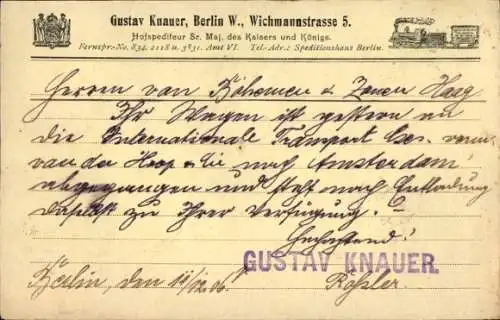 Gustav Knauer, Berlin W., Wichmannstrasse 5.
Hofspediteur Sr. Maj. des Kaisers und Königs.
Fernspr.-No. 834. 2118 u. 3831. Amt VI. Tel.-Adr.: Speditionshaus Berlin.
Herren van Böhemen & Zonen Haag
Ihr Wagen ist gestern an
die Internationale Transport Ges. vorm.
van der Hoop & Cie nach Amsterdam
abgegangen und steht nach Entladung
daselbst zu Ihrer Verfügung.
Hochachtend!
GUSTAV KNAUER.
Berlin, den 11/12.06. Röhler.